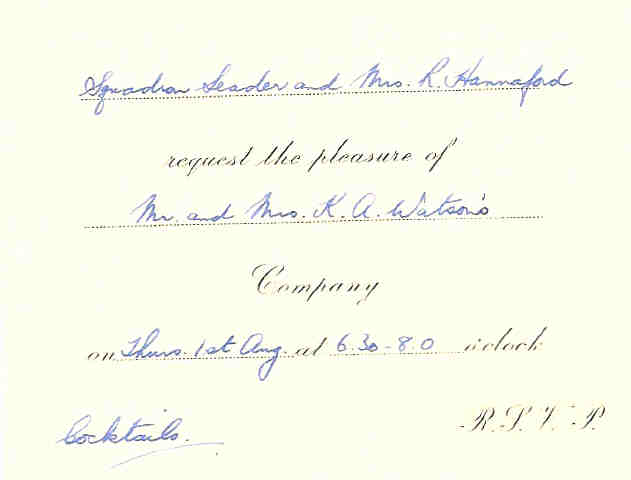 Squadron Leader and Mrs. R. Hannaford
request the pleasure of
Mr. and Mrs. K. A. Watson's
Company
on Thurs. 1st Aug. at 6.30-8.0 o'clock
Cocktails. R.S.V.P.